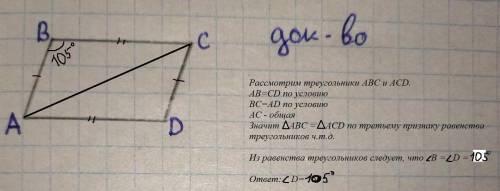 B
105°
C
A
D
док-во
Рассмотрим треугольники ABC и ACD.
AB=CD по условию
BC=AD по условию
AC - общая
Значит △ABC =△ACD по третьему признаку равенства
треугольников ч.т.д.
Из равенства треугольников следует, что ∠B =∠D = 105
Ответ:∠D=105°